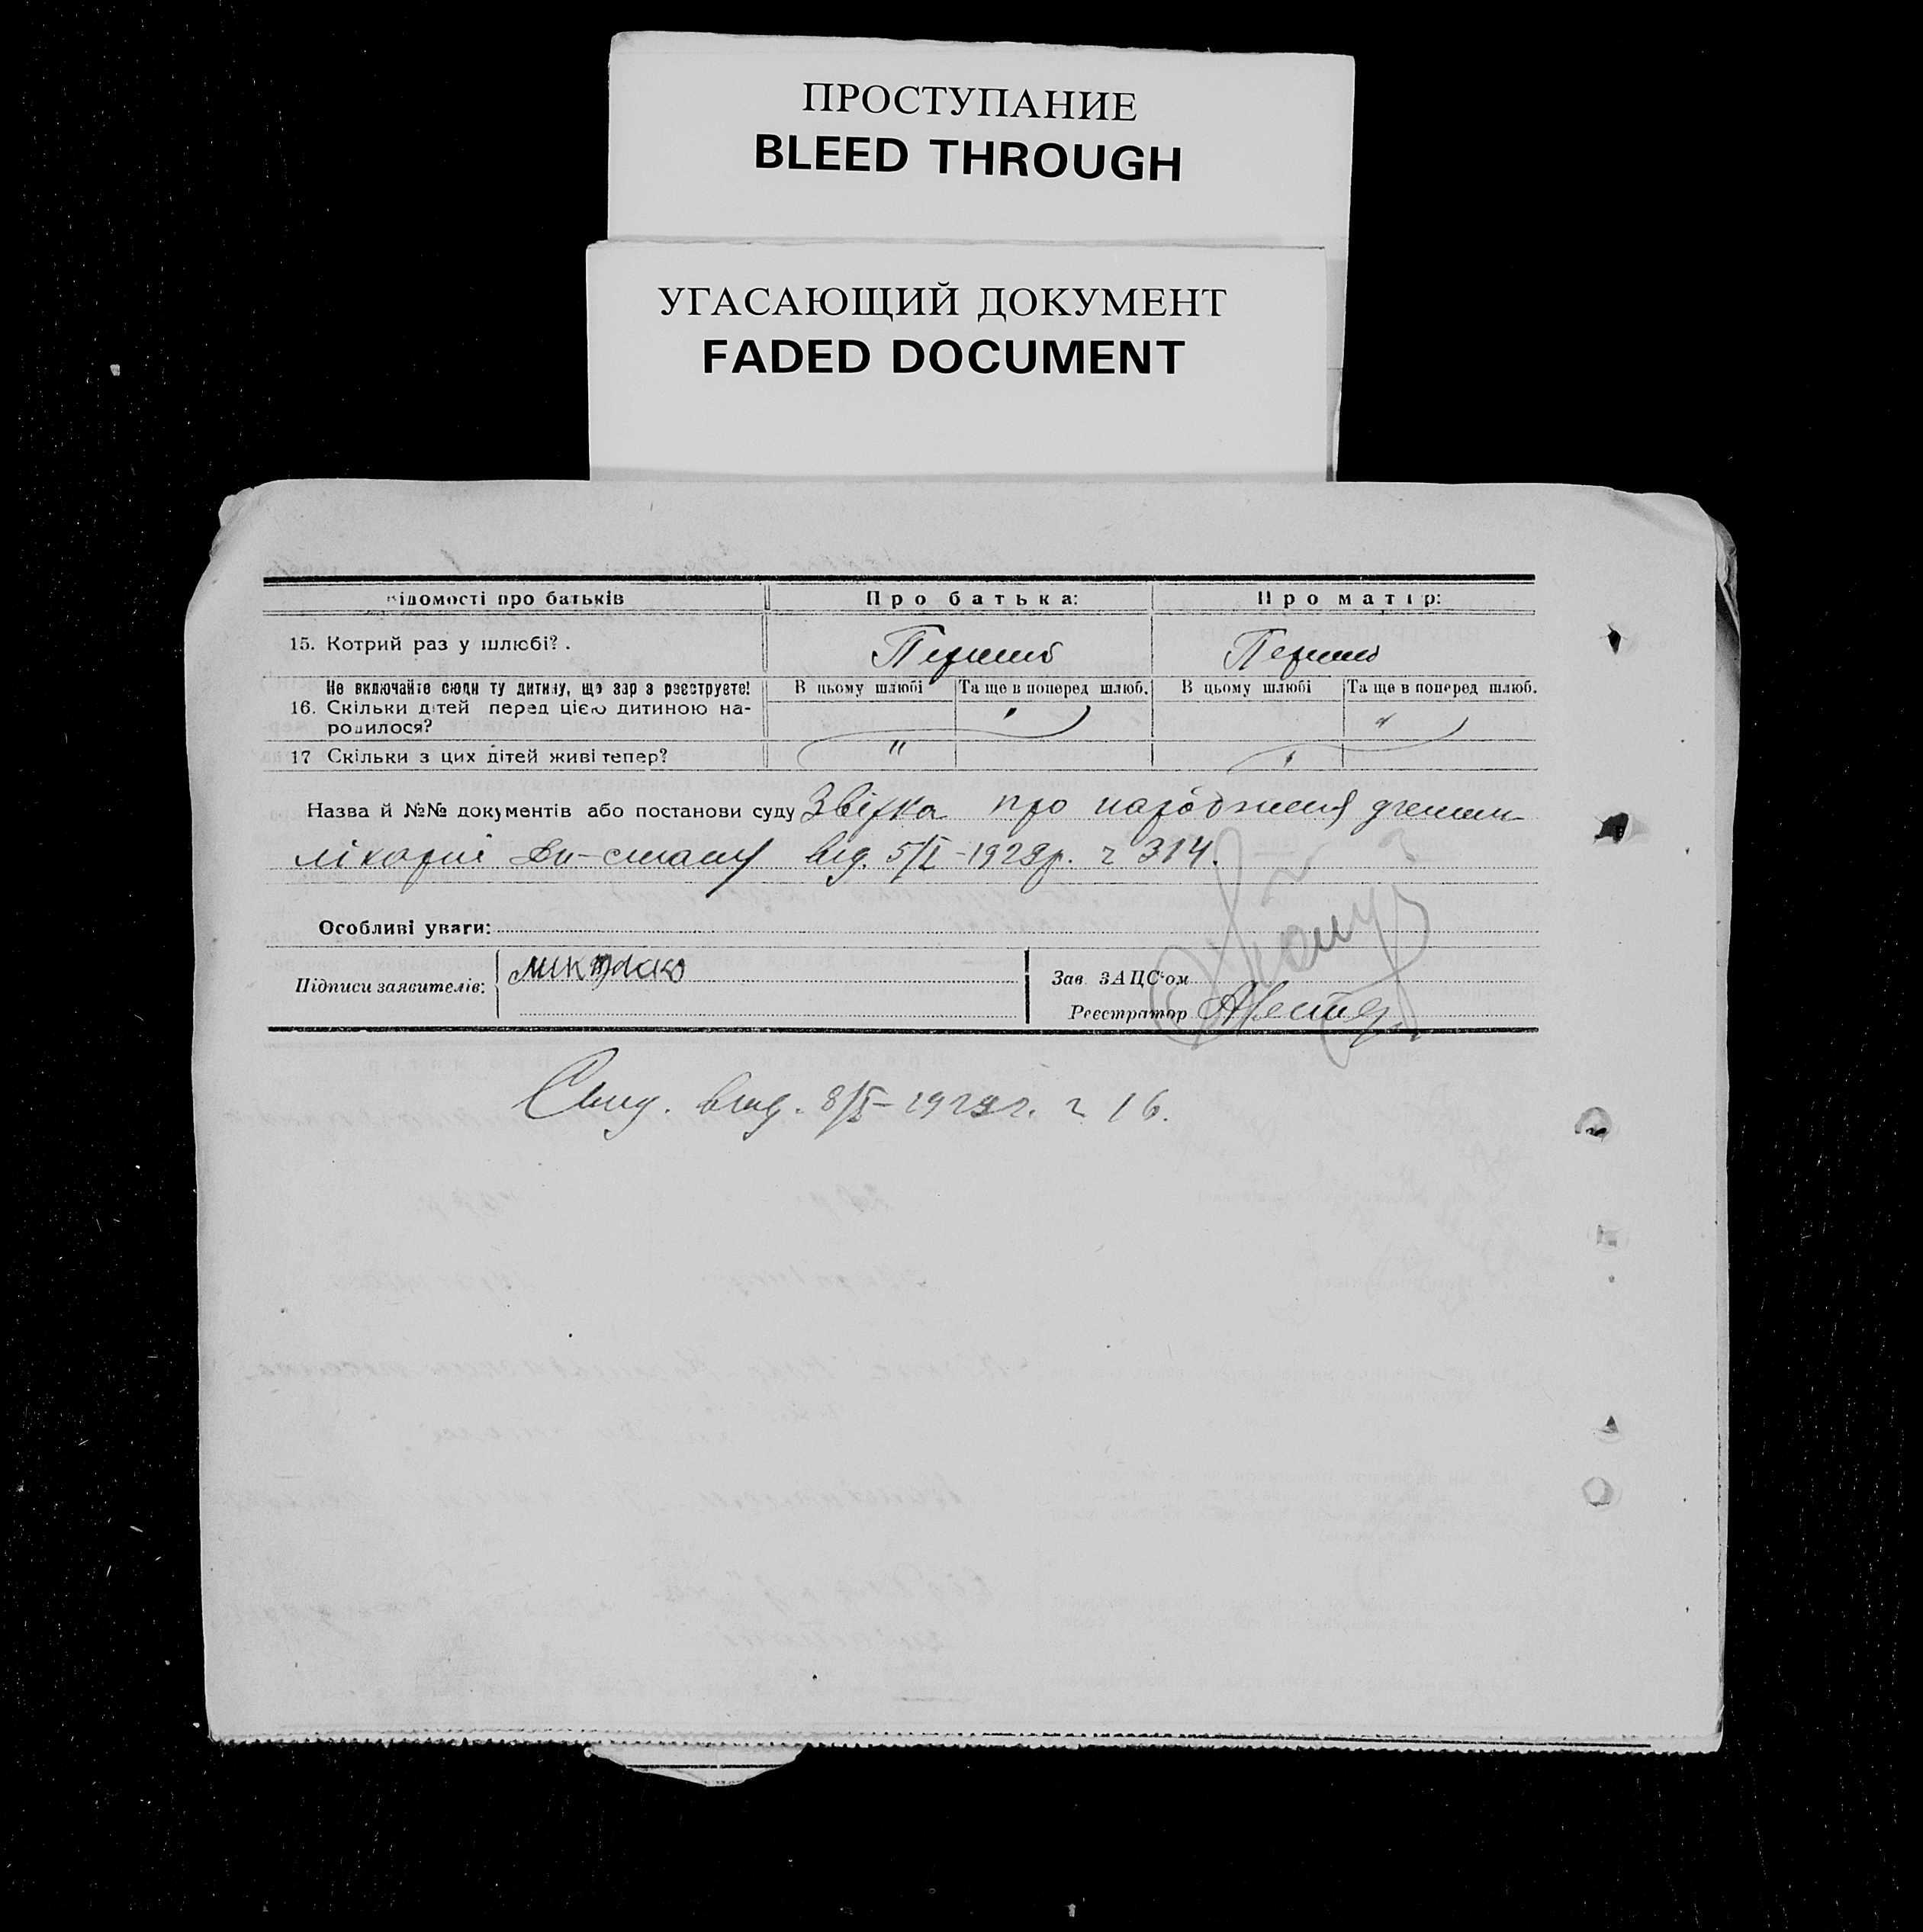 ПРОСТУПАНИЕ
BLEED THROUGH
УГАСАЮЩИЙ ДОКУМЕНТ
FADED DOCUMENT
відомості про батьків Про батька: Про матір:
15. Котрий раз у шлюбі? . Перший Перший
Не включайте сюди ту дитину, що зараз реєструєте! В цьому шлюбі Та ще в поперед шлюб. В цьому шлюбі Та ще в поперед шлюб.
16. Скільки дітей перед цією дитиною на-
родилося? " "
17 Скільки з цих дітей живі тепер? " "
Назва й №№ документів або постанови суду Звістка про народження
лікарні від. 5/I-1929р. ч 314.
Особливі уваги:
Підписи заявителів: Зав. ЗАЦС'ом
Реєстратор
Свид. вид. 8/I-1929 г. ч 16.